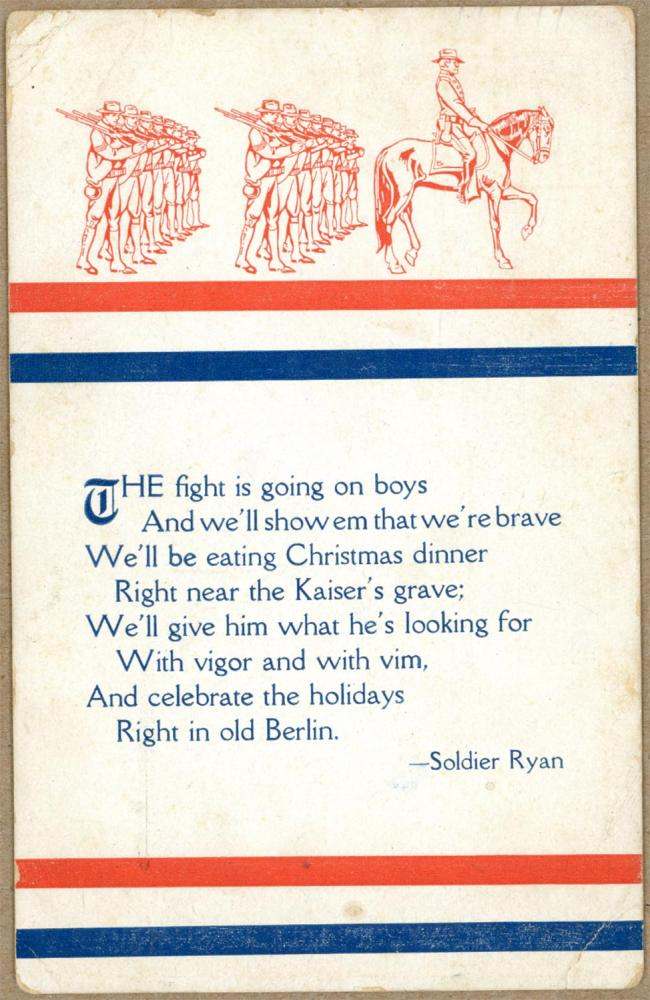 THE fight is going on boys
And we'll show em that we're brave
We'll be eating Christmas dinner
Right near the Kaiser's grave;
We'll give him what he's looking for
With vigor and with vim,
And celebrate the holidays
Right in old Berlin.
—Soldier Ryan